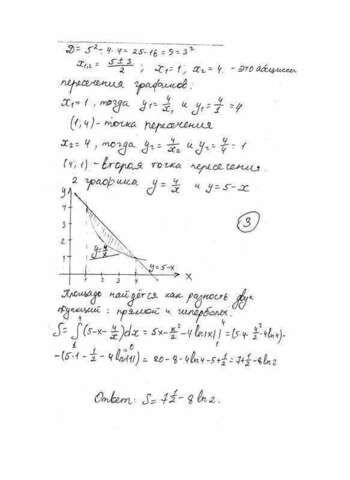 D = 5² - 4·4 = 25 - 16 = 9 = 3²
x₁,₂ = (5±3)/2 ; x₁ = 1, x₂ = 4. - это абсциссы
пересечения графиков:
x₁ = 1, тогда y₁ = 4/x₁ и y₁ = 4/1 = 4
(1, 4) - точка пересечения
x₂ = 4, тогда y₂ = 4/x₂ и y₂ = 4/4 = 1
(4, 1) - вторая точка пересечения.
2 графика y = 4/x и y = 5 - x
3
y
4
3
2
1
y = 4/x
1 2 3 4
y = 5 - x
x
Площадь найдётся как разность двух
функций: прямой и гиперболы.
S = ∫₁⁴ (5 - x - 4/x) dx = 5x - x²/2 - 4 ln|x| |₁⁴ = (5·4 - 4²/2 - 4 ln 4) -
- (5·1 - 1/2 - 4 ln|1|) = 20 - 8 - 4 ln 4 - 5 + 1/2 = 7 + 1/2 - 8 ln 2
0
Ответ: S = 7 1/2 - 8 ln 2.